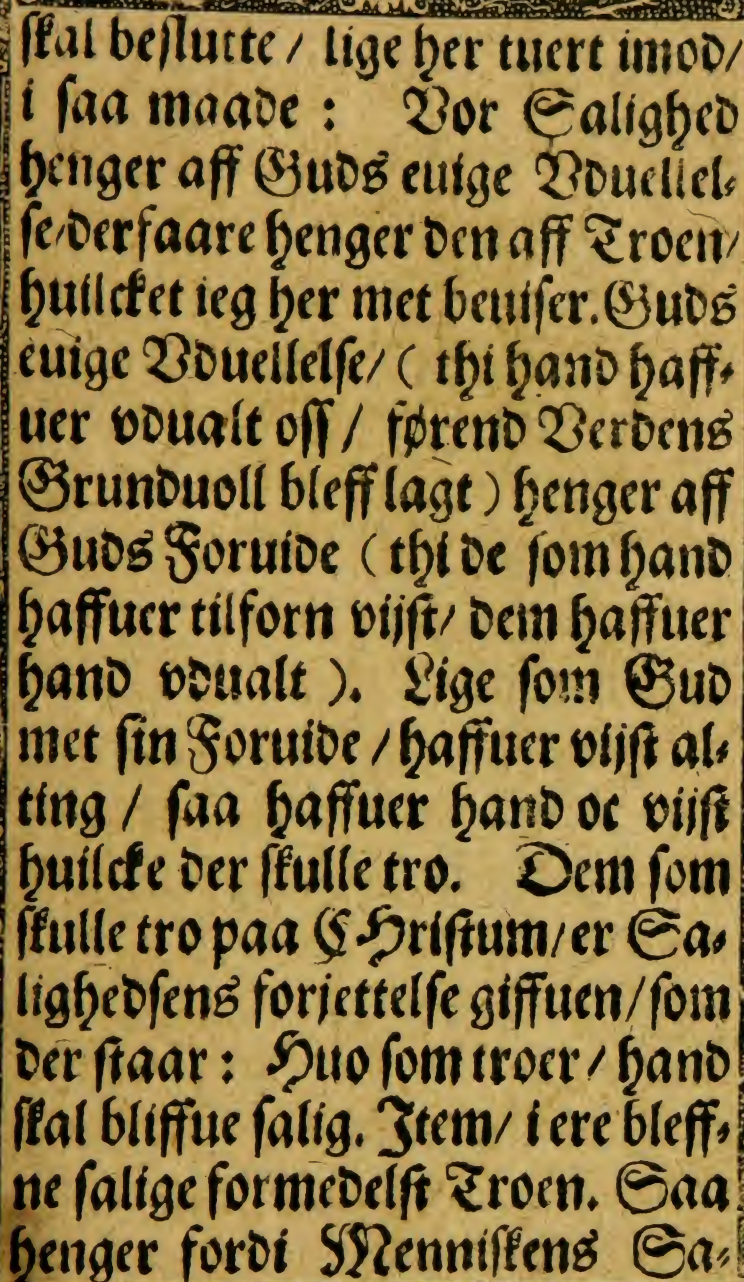 skal beslutte / lige her tuert imod/
i saa maade : Vor Salighed
henger aff Guds euige Vduellel-
se/derfaare henger den aff Troen/
huilcket ieg her met beuiser. Guds
euige Vduellelse/ ( thi hand haff-
uer vdualt oss / førend Verdens
Grunduoll bleff lagt ) henger aff
Guds Foruide ( thi de som hand
haffuer tilforn vijst/ dem haffuer
hand vdualt ). Lige som Gud
met sin Foruide / haffuer vijst al-
ting / saa haffuer hand oc vijst
huilcke der skulle tro. Dem som
skulle tro paa CHristum/er Sa-
lighedsens forjettelse giffuen/som
der staar : Huo som troer / hand
skal bliffue salig. Item/ i ere bleff-
ne salige formedelst Troen. Saa
henger fordi Menniskens Sa-